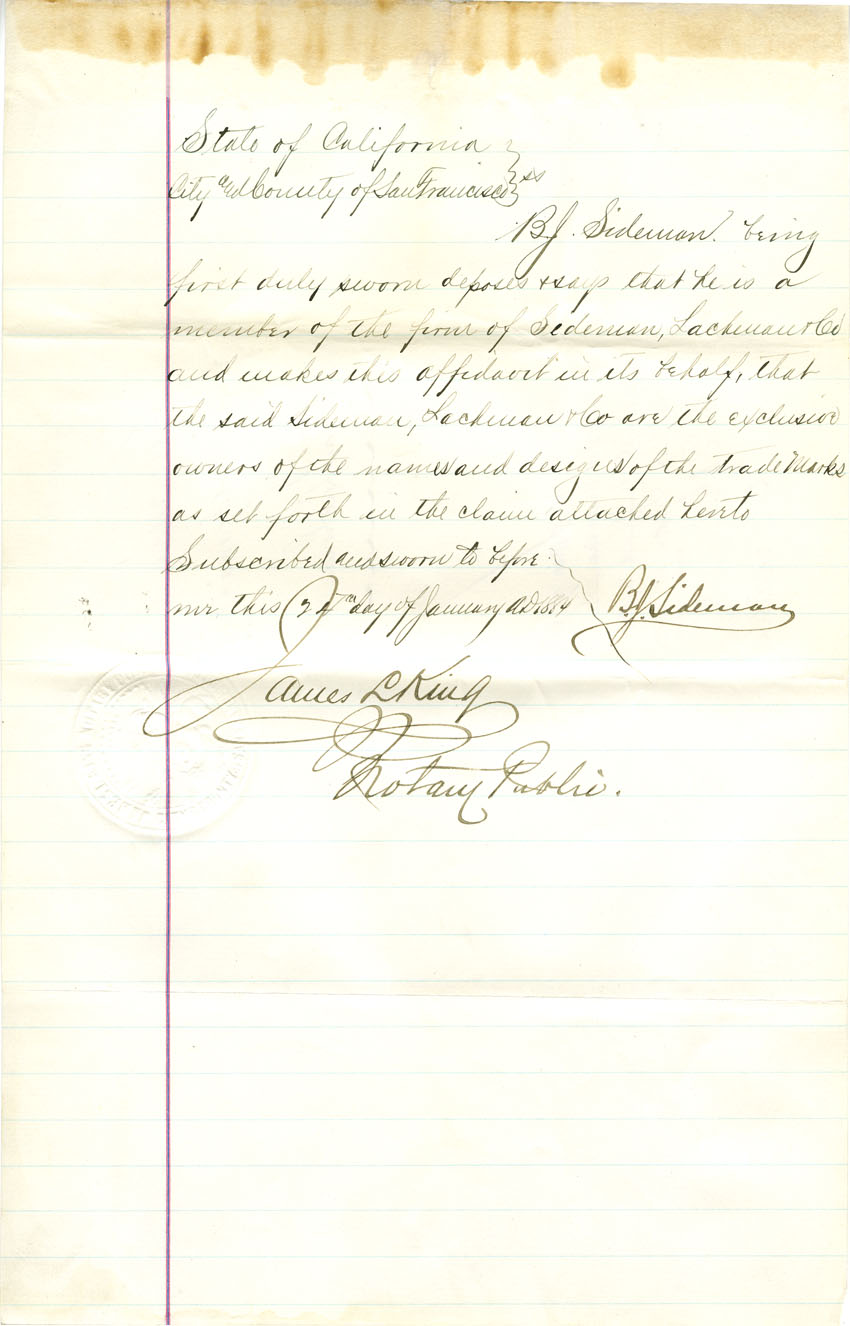 State of California }
City and County of San Francisco } ss
B.J. Sideman. being
first duly sworn deposes & says that he is a
member of the firm of Sideman, Lachman & Co
and makes this affidavit in its behalf, that
the said Sideman, Lachman & Co are the exclusive
owners of the names and designs of the trade Marks
as set forth in the claim attached hereto
Subscribed and sworn to before
me this 24th day of January A.D. 1884 B.J. Sideman
James L King
Notary Public.